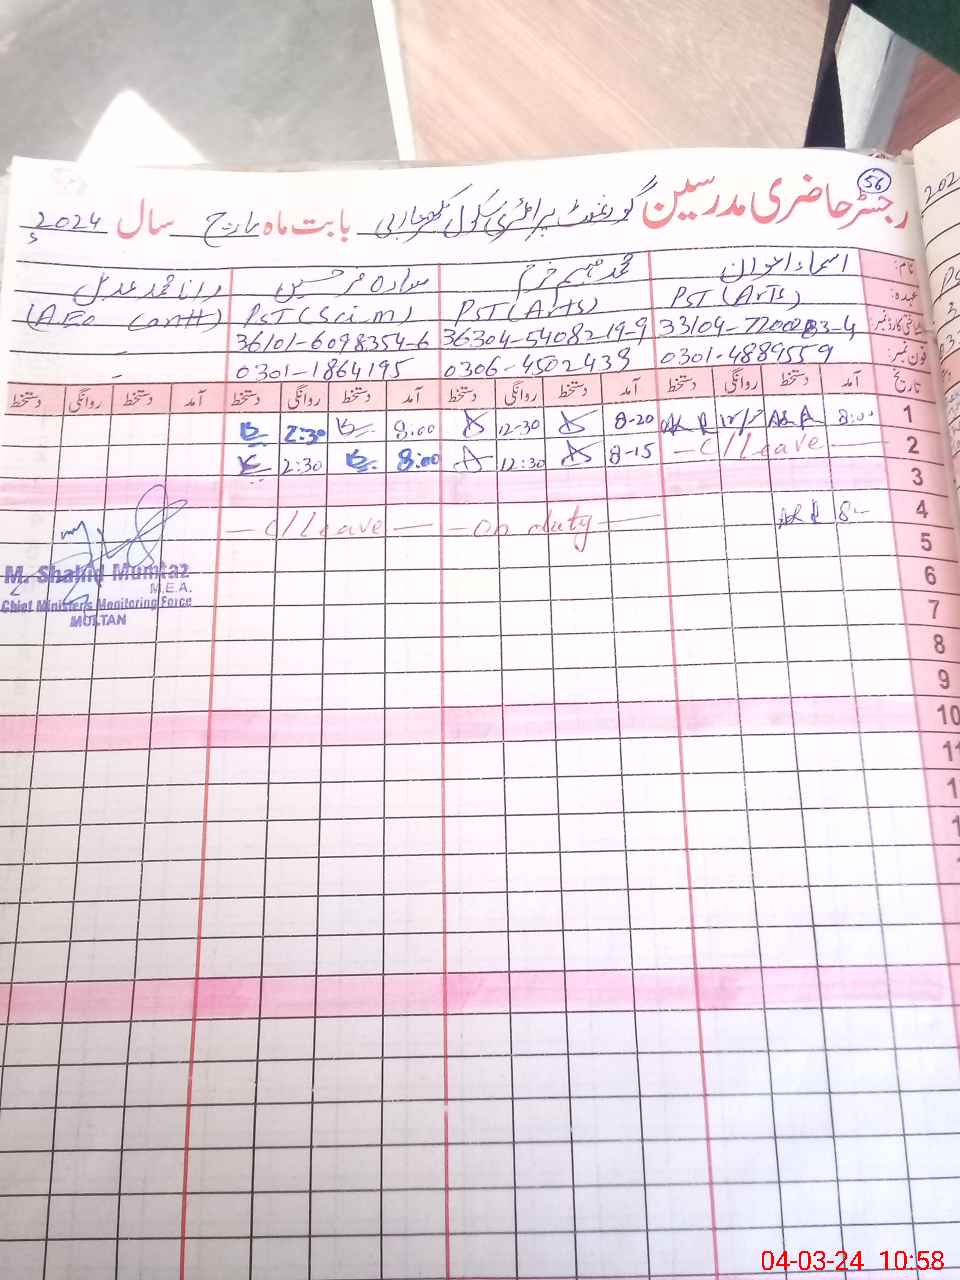 56
رجسٹر حاضری مدرسین گورنمنٹ پرائمری سکول بابت ماہ مارچ سال 2024
نام: اسماء اعوان محمد فہیم خرم حسین رانا محمد عدیل
عہدہ: PST (Arts) PST (Arts) PST (Sci.m) (AEO Cantt)
شناختی کارڈ نمبر: 33104-7200283-4 36304-5408219-9 36101-6098354-6
فون نمبر: 0301-4889559 0306-4502439 0301-1864195
تاریخ آمد دستخط روانگی دستخط آمد دستخط روانگی دستخط آمد دستخط روانگی دستخط آمد دستخط روانگی دستخط
1 8:00 8-20 12-30 8:00 2:30
2 C/Leave 8-15 12:30 8:00 2:30
3
4 8- on duty C/Leave
5
6
7
8
9
10
11
M. Shahid Mumtaz
M.E.A.
Chief Minister's Monitoring Force
MULTAN
04-03-24 10:58